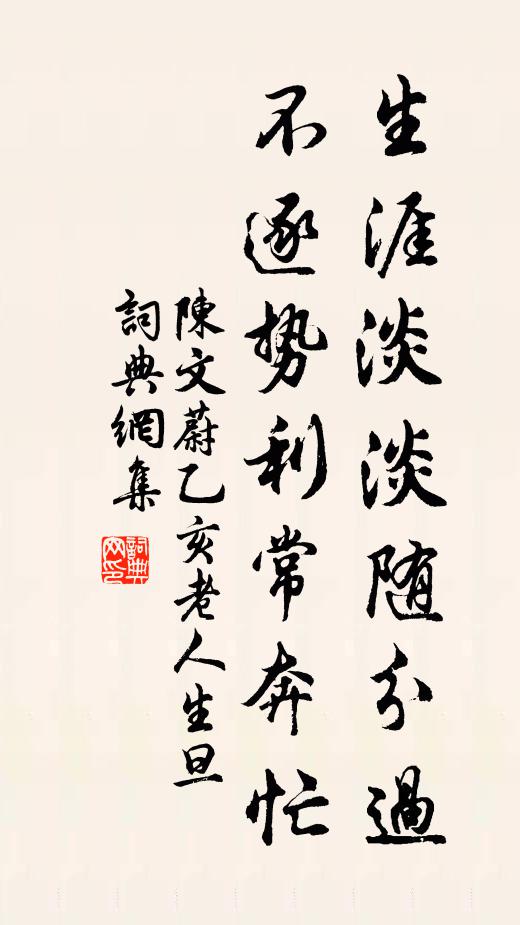 生涯淡淡随分過
不逐势利常奔忙
陳文蔚乙亥老人生旦
詞典網集
詞典
网印